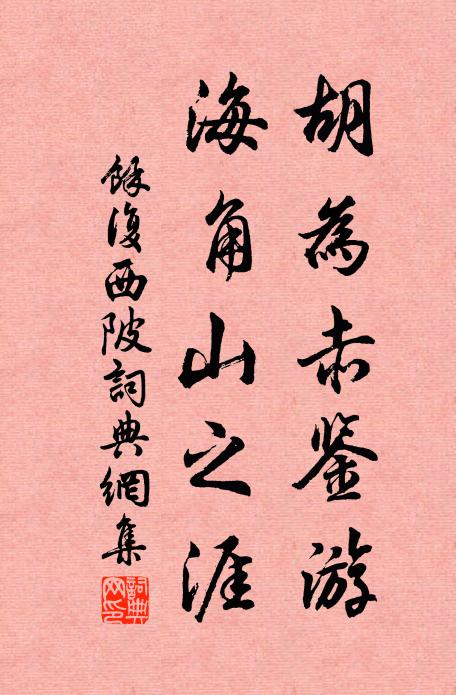 胡為赤鉴游
海角山之涯
餘復西陂詞典網集
詞典網印